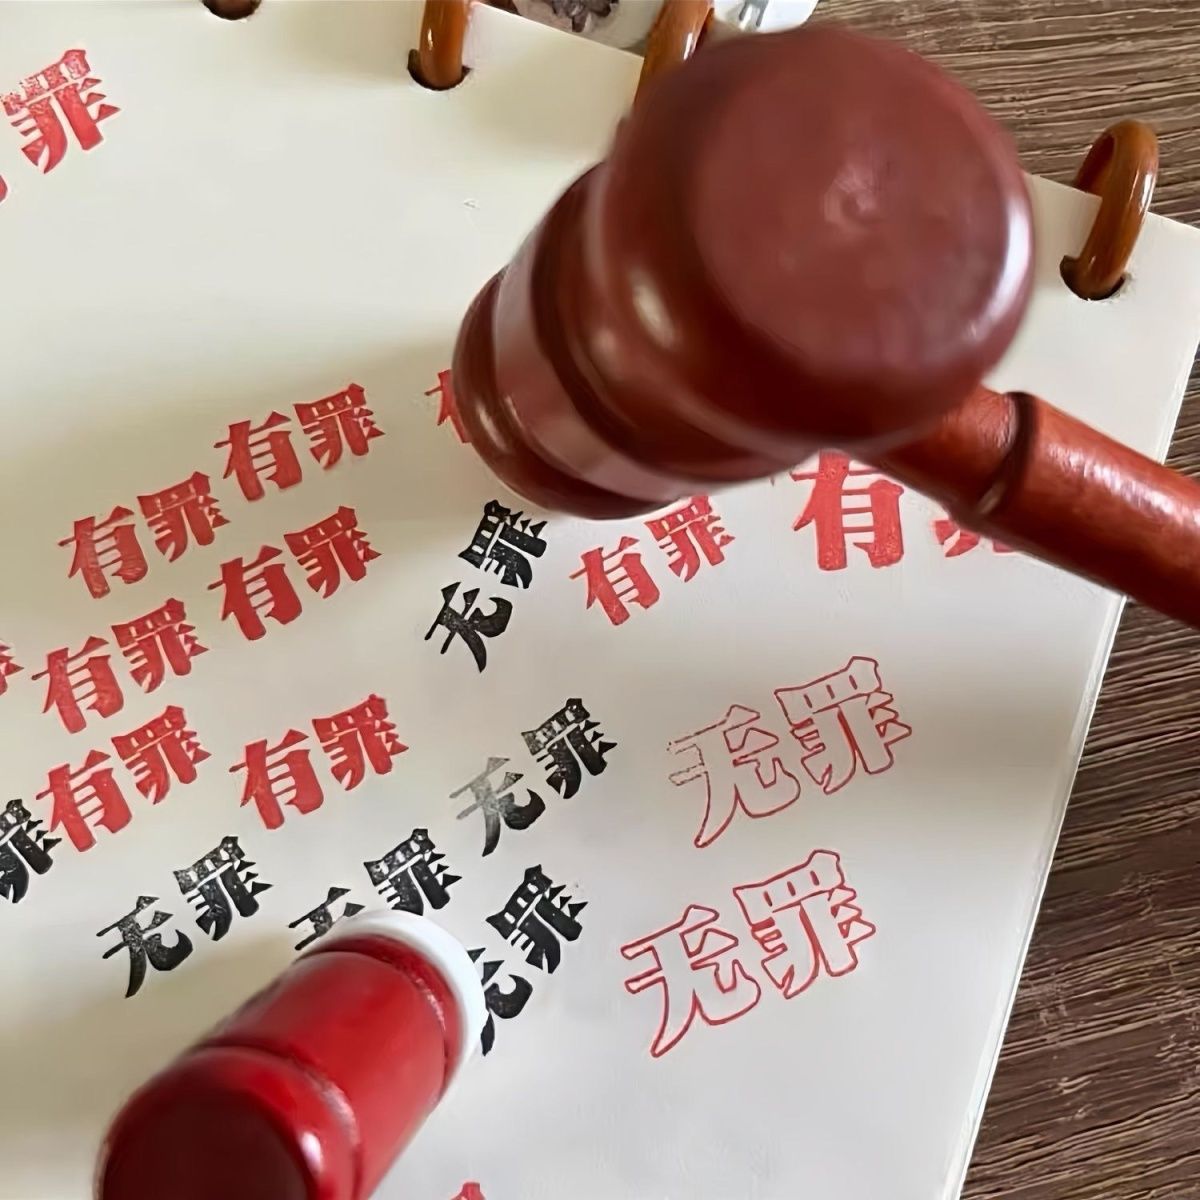 罪
有罪
有罪
有罪
有罪
无罪
有罪
有罪
有罪
有罪
无罪
无罪
罪
无罪
无罪
无罪
无罪